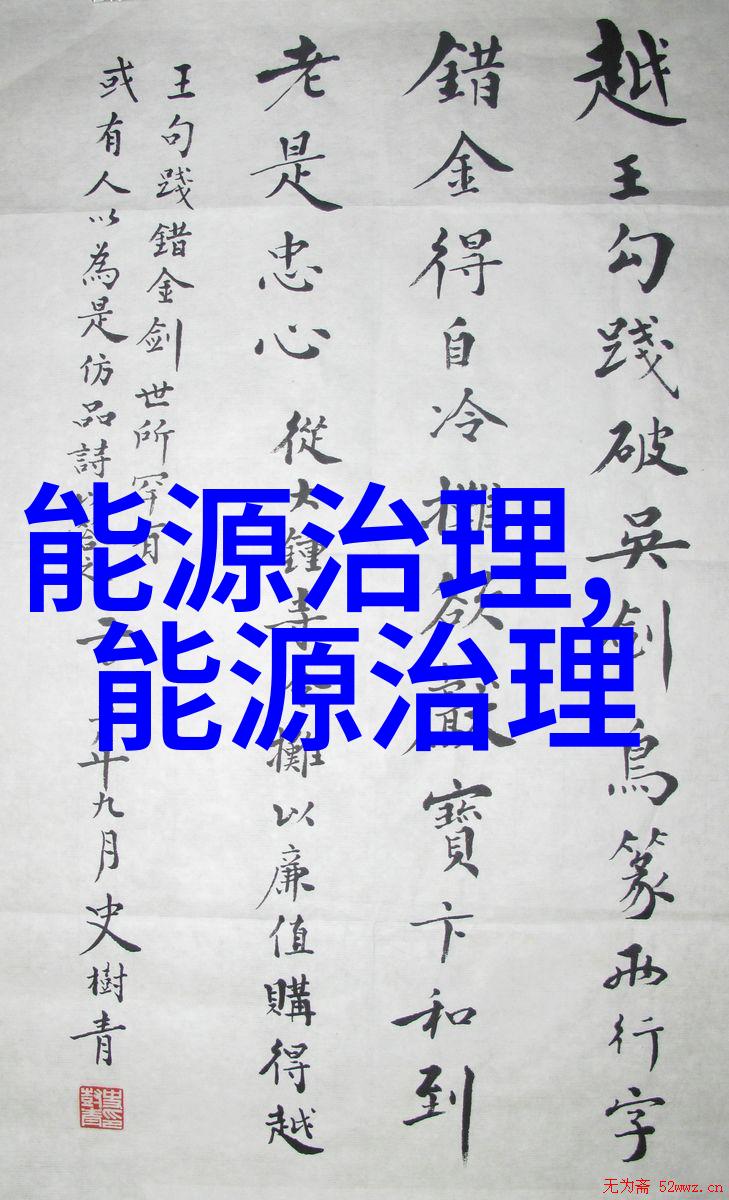 越王勾踐破吳剑鳥篆兩行字
錯金得自冷攤欲獻寶卞和到
老是忠心 從大鍾寺攤以廉值購得越
王句踐錯金剑世所罕有
或有人以為是仿品詩以之年九月史樹青
能源治理,
能源治理
无为斋 52wwz.cn